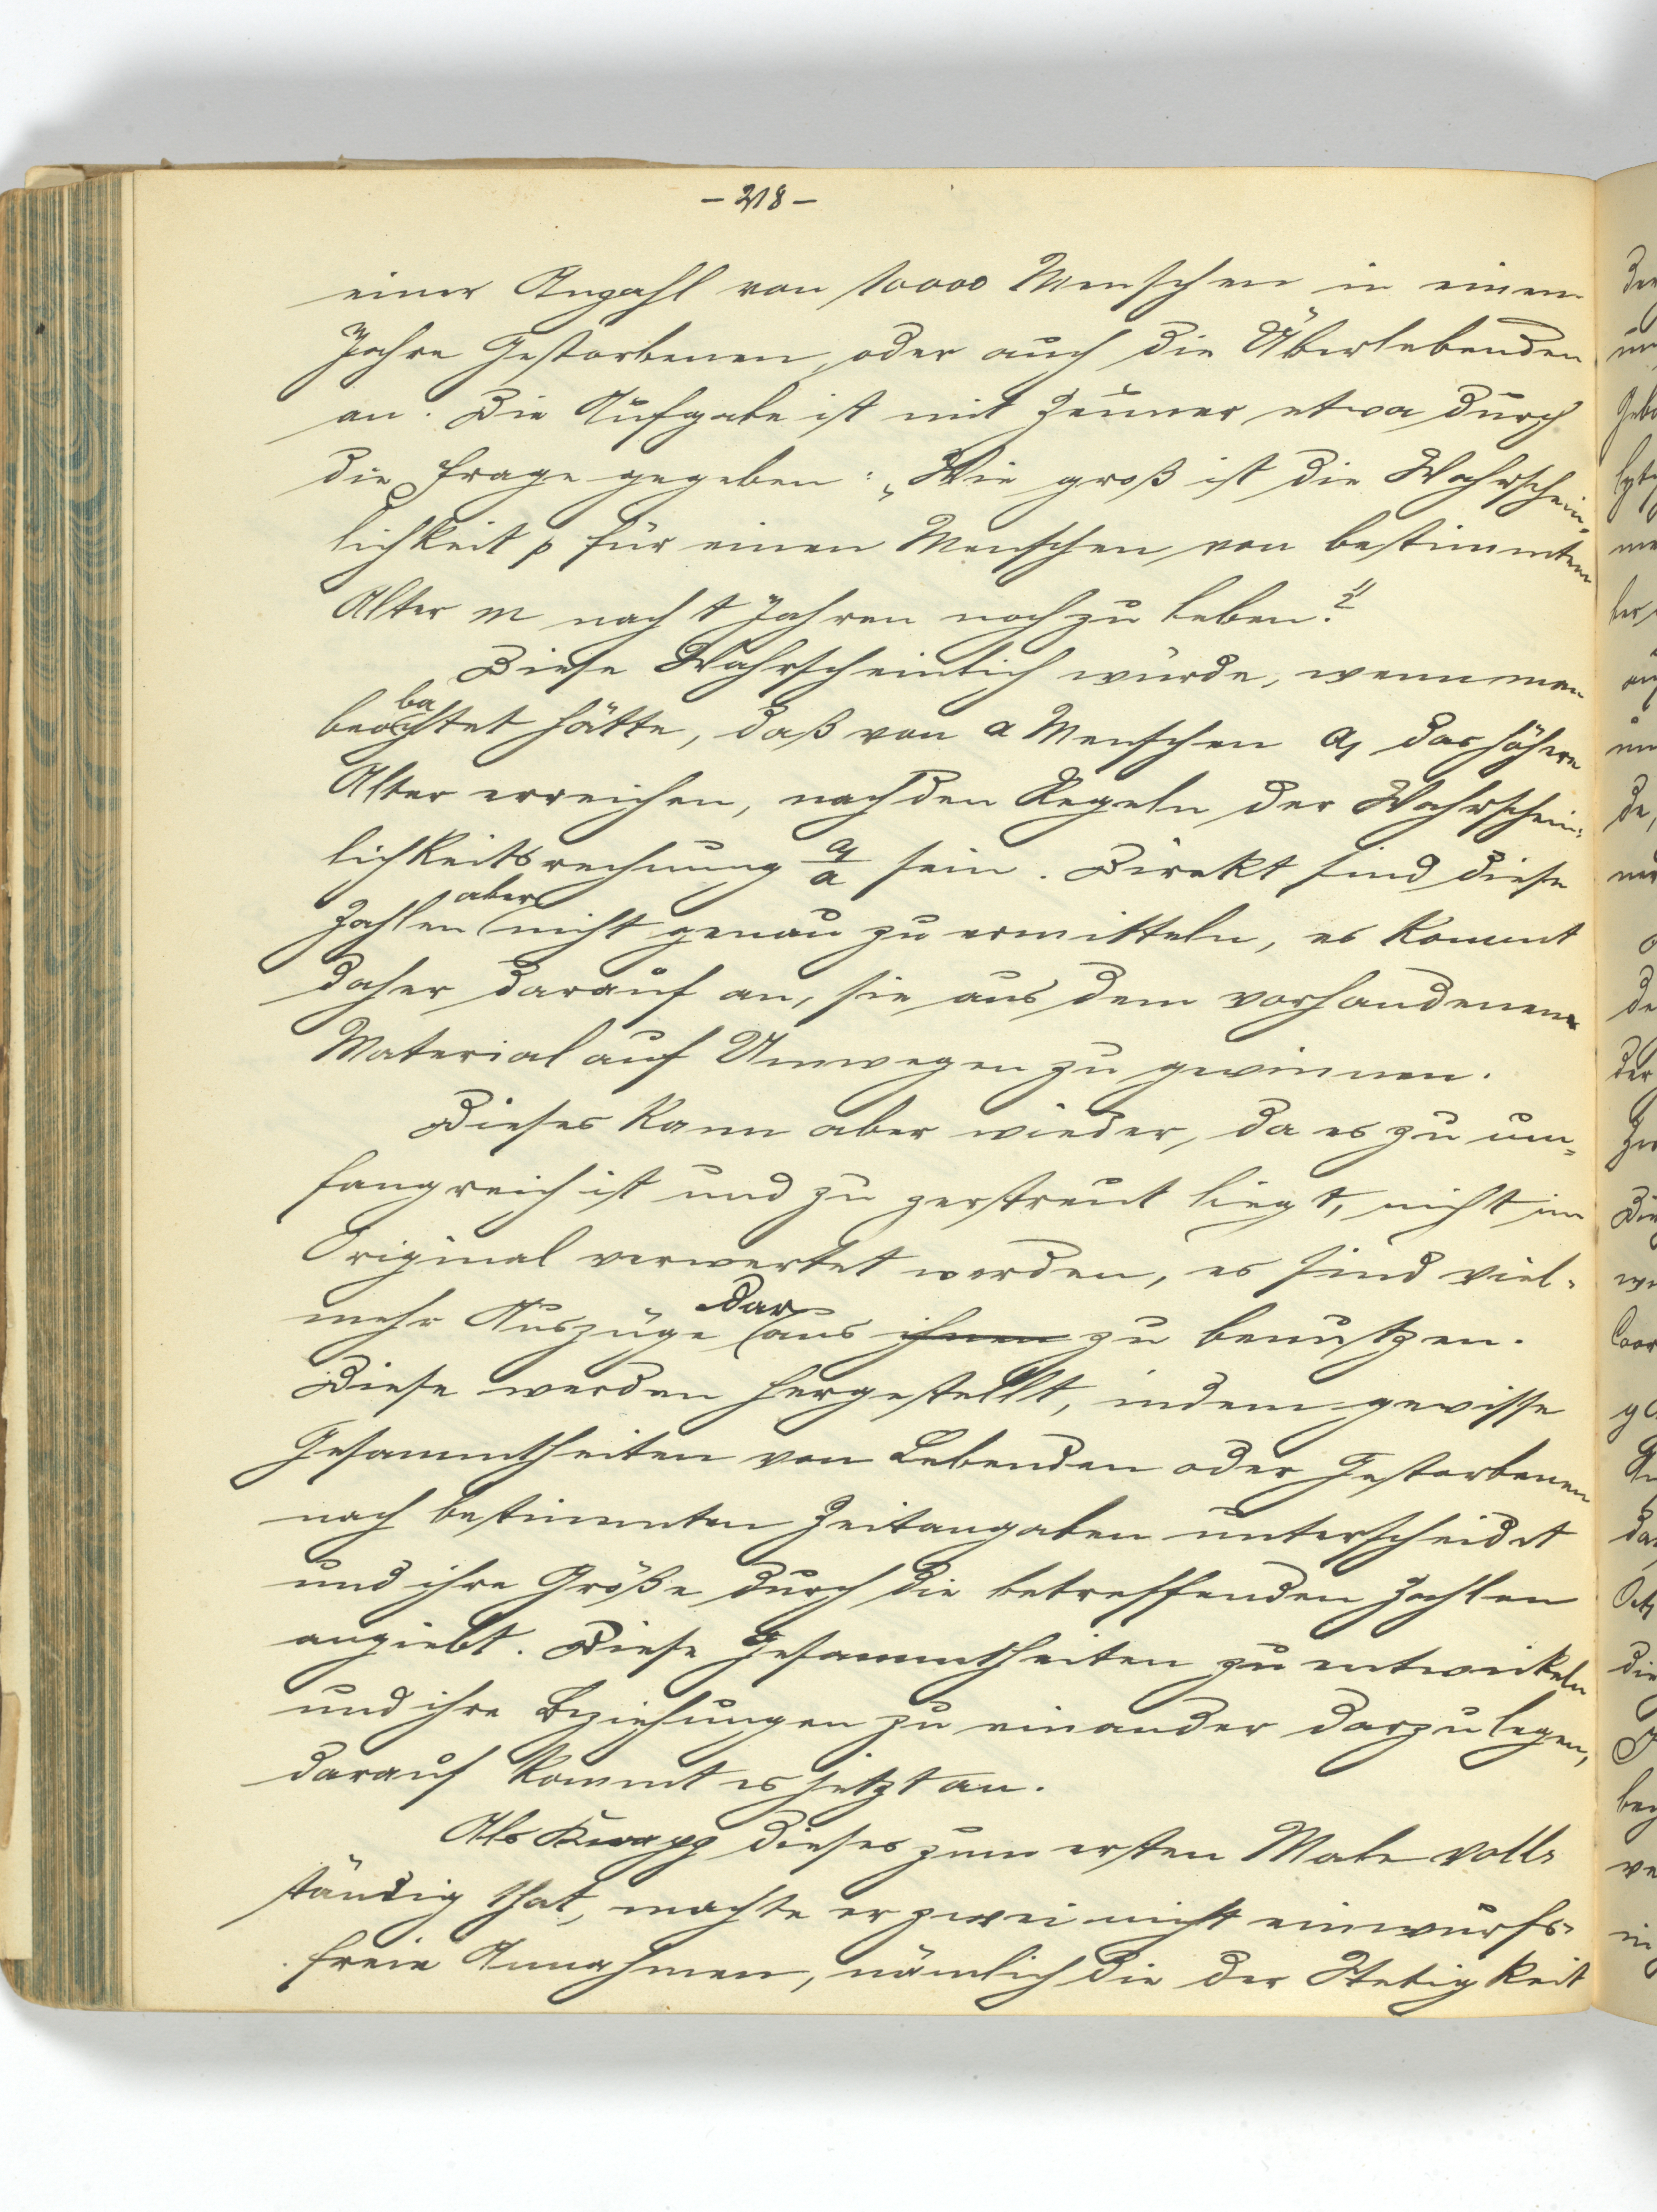 – 218 –
einer Anzahl von 10000 Menschen in einem
Jahre Gestorbenen, oder auch die Überlebenden
an. Die Aufgabe ist mit Zeuner etwa durch
die Frage gegeben: „Wie groß ist die Wahrschein-
lichkeit p für einen Menschen von bestimmtem
Alter m nach t Jahren noch zu leben?"
Diese Wahrscheinlich würde, wenn man
beobachtet hätte, daß von a Menschen a₁ das höhere
Alter erreichen, nach den Regeln der Wahrschein-
lichkeitsrechnung a₁/a sein. Direkt sind diese
Zahlen aber nicht genau zu ermitteln, es kommt
daher darauf an, sie aus dem vorhandenen
Material auf Umwegen zu gewinnen.
Dieses kann aber wieder, da es zu um-
fangreich ist und zu zerstreut liegt, nicht im
Original verwertet werden, es sind viel-
mehr Auszüge daraus ihnen zu benutzen.
Diese werden hergestellt, indem gewisse
Gesammtheiten von Lebenden oder Gestorbenen
nach bestimmten Zeitangaben unterscheidet
und ihre Größe durch die betreffenden Zahlen
angiebt. Diese Gesammtheiten zu entwickeln
und ihre Beziehungen zu einander darzulegen,
darauf kommt es jetzt an.
Als Knapp dieses zum ersten Male voll-
ständig that, machte er zwei nicht einwurfs-
freie Annahmen, nämlich die der Stetigkeit